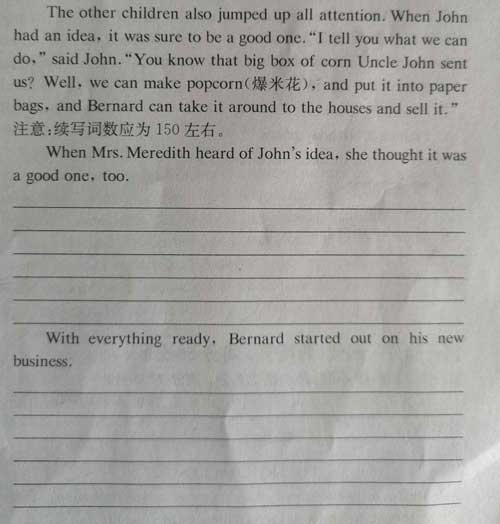 The other children also jumped up all attention. When John
had an idea, it was sure to be a good one. “I tell you what we can
do,” said John. “You know that big box of corn Uncle John sent
us? Well, we can make popcorn(爆米花), and put it into paper
bags, and Bernard can take it around to the houses and sell it.”
注意:续写词数应为 150 左右。
When Mrs. Meredith heard of John’s idea, she thought it was
a good one, too.
With everything ready, Bernard started out on his new
business.